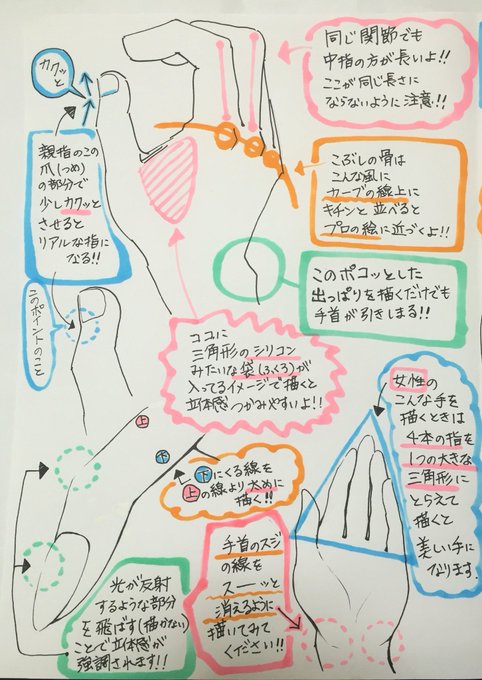 同じ関節でも
中指の方が長いよ!!
ここが同じ長さに
ならないように注意!!
カクッ
と
親指のこの
爪(つめ)
の部分で
少しカクッと
させると
リアルな指に
なる!!
こぶしの骨は
こんな風に
カーブの線上に
キチンと並べると
プロの絵に近づくよ!!
このポコッとした
出っぱりを描くだけでも
手首が引きしまる!!
このポイントのこと
ココに
三角形のシリコン
みたいな袋(ふくろ)が
入ってるイメージで描くと
立体感つかみやすいよ!!
女性の
こんな手を
描くときは
4本の指を
1つの大きな
三角形に
とらえて
描くと
美しい手に
なります.
上
下
下にくる線を
上の線より太めに
描く!!
手首のスジ
の線を
スーーッと
消えるように
描いてみて
ください!!
光が反射
するような部分
を飛ばす(描かない)
ことで立体感が
強調されます!!